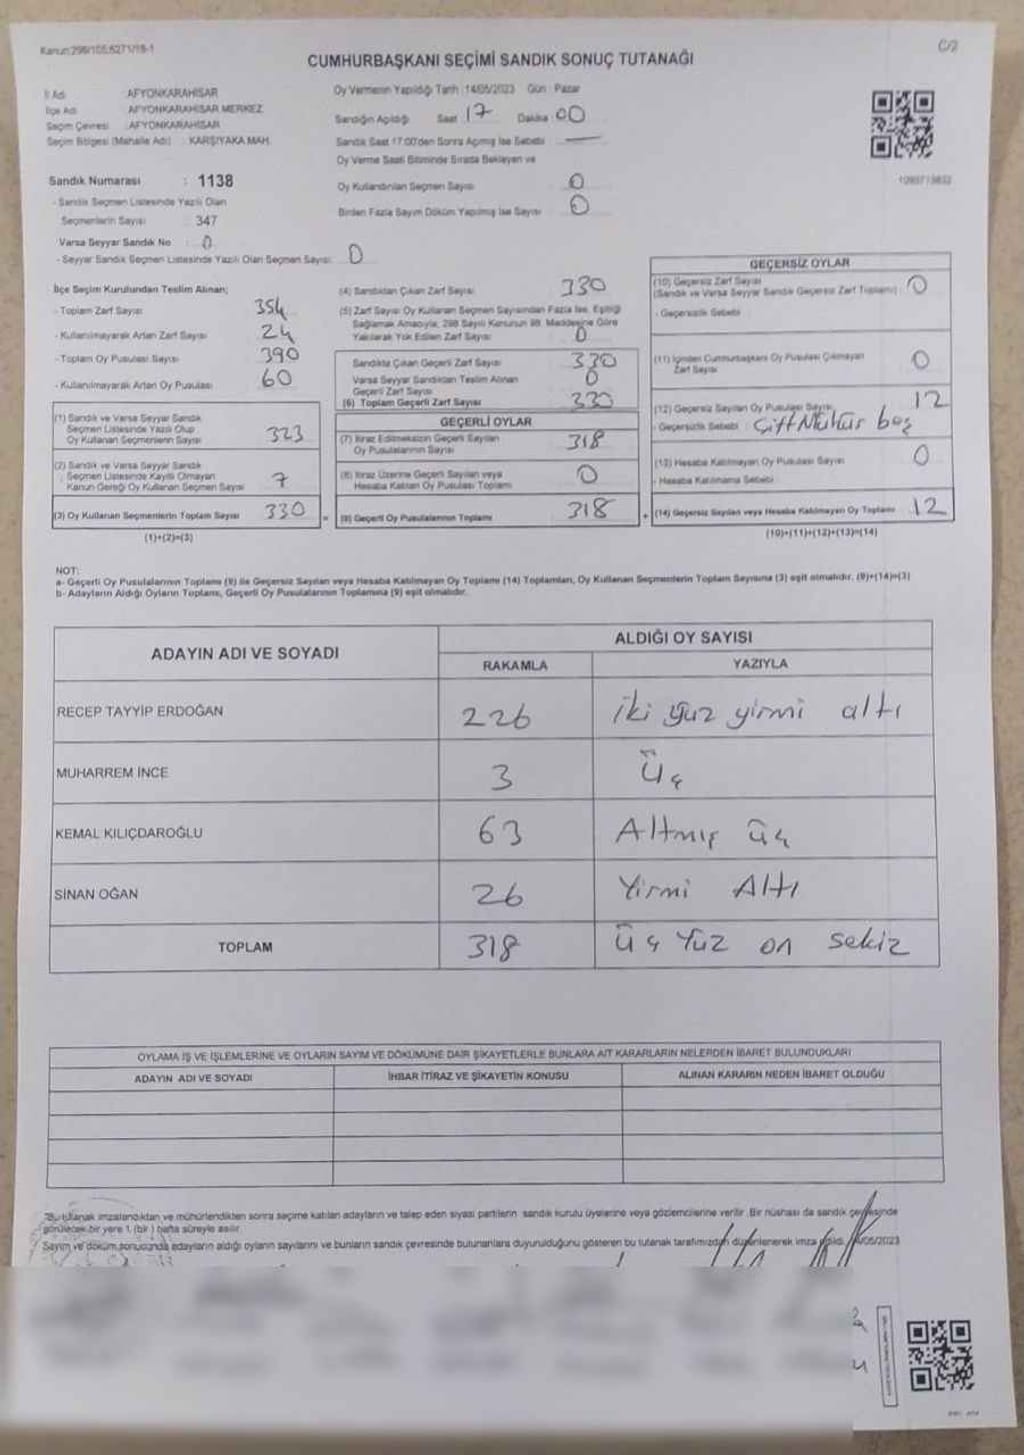 Kanun:298/105,6271/18-1
C/2
CUMHURBAŞKANI SEÇİMİ SANDIK SONUÇ TUTANAĞI
İl Adı : AFYONKARAHİSAR
İlçe Adı : AFYONKARAHİSAR MERKEZ
Seçim Çevresi : AFYONKARAHİSAR
Seçim Bölgesi (Mahalle Adı) : KARŞIYAKA MAH.
Oy Vermenin Yapıldığı Tarih : 14/05/2023 Gün : Pazar
Sandığın Açıldığı Saat 17 Dakika 00
Sandık Saat 17:00'den Sonra Açılmış İse Sebebi —
Oy Verme Saati Bitiminde Sırada Bekleyen ve
Oy Kullandırılan Seçmen Sayısı 0
Birden Fazla Sayım Döküm Yapılmış İse Sayısı 0
Sandık Numarası : 1138
- Sandık Seçmen Listesinde Yazılı Olan
Seçmenlerin Sayısı 347
Varsa Seyyar Sandık No : 0
- Seyyar Sandık Seçmen Listesinde Yazılı Olan Seçmen Sayısı 0
İlçe Seçim Kurulundan Teslim Alınan;
- Toplam Zarf Sayısı 354
- Kullanılmayarak Artan Zarf Sayısı 24
- Toplam Oy Pusulası Sayısı 390
- Kullanılmayarak Artan Oy Pusulası 60
(1) Sandık ve Varsa Seyyar Sandık
Seçmen Listesinde Yazılı Olup
Oy Kullanan Seçmenlerin Sayısı 323
(2) Sandık ve Varsa Seyyar Sandık
Seçmen Listesinde Kayıtlı Olmayan
Kanun Gereği Oy Kullanan Seçmen Sayısı 7
(3) Oy Kullanan Seçmenlerin Toplam Sayısı 330
(1)+(2)=(3)
(4) Sandıktan Çıkan Zarf Sayısı 330
(5) Zarf Sayısı Oy Kullanan Seçmen Sayısından Fazla İse, Eşitliği
Sağlamak Amacıyla, 298 Sayılı Kanunun 98. Maddesine Göre
Yakılarak Yok Edilen Zarf Sayısı 0
Sandıkta Çıkan Geçerli Zarf Sayısı 330
Varsa Seyyar Sandıktan Teslim Alınan
Geçerli Zarf Sayısı 0
(6) Toplam Geçerli Zarf Sayısı 330
GEÇERLİ OYLAR
(7) İtiraz Edilmeksizin Geçerli Sayılan
Oy Pusulalarının Sayısı 318
(8) İtiraz Üzerine Geçerli Sayılan veya
Hesaba Katılan Oy Pusulası Toplamı 0
= (9) Geçerli Oy Pusulalarının Toplamı 318
GEÇERSİZ OYLAR
(10) Geçersiz Zarf Sayısı
(Sandık ve Varsa Seyyar Sandık Geçersiz Zarf Toplamı) 0
- Geçersizlik Sebebi
(11) İçinden Cumhurbaşkanı Oy Pusulası Çıkmayan
Zarf Sayısı 0
(12) Geçersiz Sayılan Oy Pusulası Sayısı 12
- Geçersizlik Sebebi : Çift Mühür boş
(13) Hesaba Katılmayan Oy Pusulası Sayısı 0
- Hesaba Katılmama Sebebi
+ (14) Geçersiz Sayılan veya Hesaba Katılmayan Oy Toplamı 12
(10)+(11)+(12)+(13)=(14)
NOT:
a- Geçerli Oy Pusulalarının Toplamı (9) ile Geçersiz Sayılan veya Hesaba Katılmayan Oy Toplamı (14) Toplamları, Oy Kullanan Seçmenlerin Toplam Sayısına (3) eşit olmalıdır. (9)+(14)=(3)
b- Adayların Aldığı Oyların Toplamı, Geçerli Oy Pusulalarının Toplamına (9) eşit olmalıdır.
ADAYIN ADI VE SOYADI
ALDIĞI OY SAYISI
RAKAMLA YAZIYLA
RECEP TAYYİP ERDOĞAN 226 iki yüz yirmi altı
MUHARREM İNCE 3 üç
KEMAL KILIÇDAROĞLU 63 Altmış üç
SİNAN OĞAN 26 Yirmi Altı
TOPLAM 318 üç Yüz on sekiz
OYLAMA İŞ VE İŞLEMLERİNE VE OYLARIN SAYIM VE DÖKÜMÜNE DAİR ŞİKAYETLERLE BUNLARA AİT KARARLARIN NELERDEN İBARET BULUNDUKLARI
ADAYIN ADI VE SOYADI İHBAR İTİRAZ VE ŞİKAYETİN KONUSU ALINAN KARARIN NEDEN İBARET OLDUĞU
Bu tutanak imzalandıktan ve mühürlendikten sonra seçime katılan adayların ve talep eden siyasi partilerin sandık kurulu üyelerine veya gözlemcilerine verilir. Bir nüshası da sandık çevresinde
görülecek bir yere 1 (bir) hafta süreyle asılır.
Sayım ve döküm sonucunda adayların aldığı oyların sayılarını ve bunların sandık çevresinde bulunanlara duyurulduğunu gösteren bu tutanak tarafımızdan düzenlenerek imza edildi. /05/2023